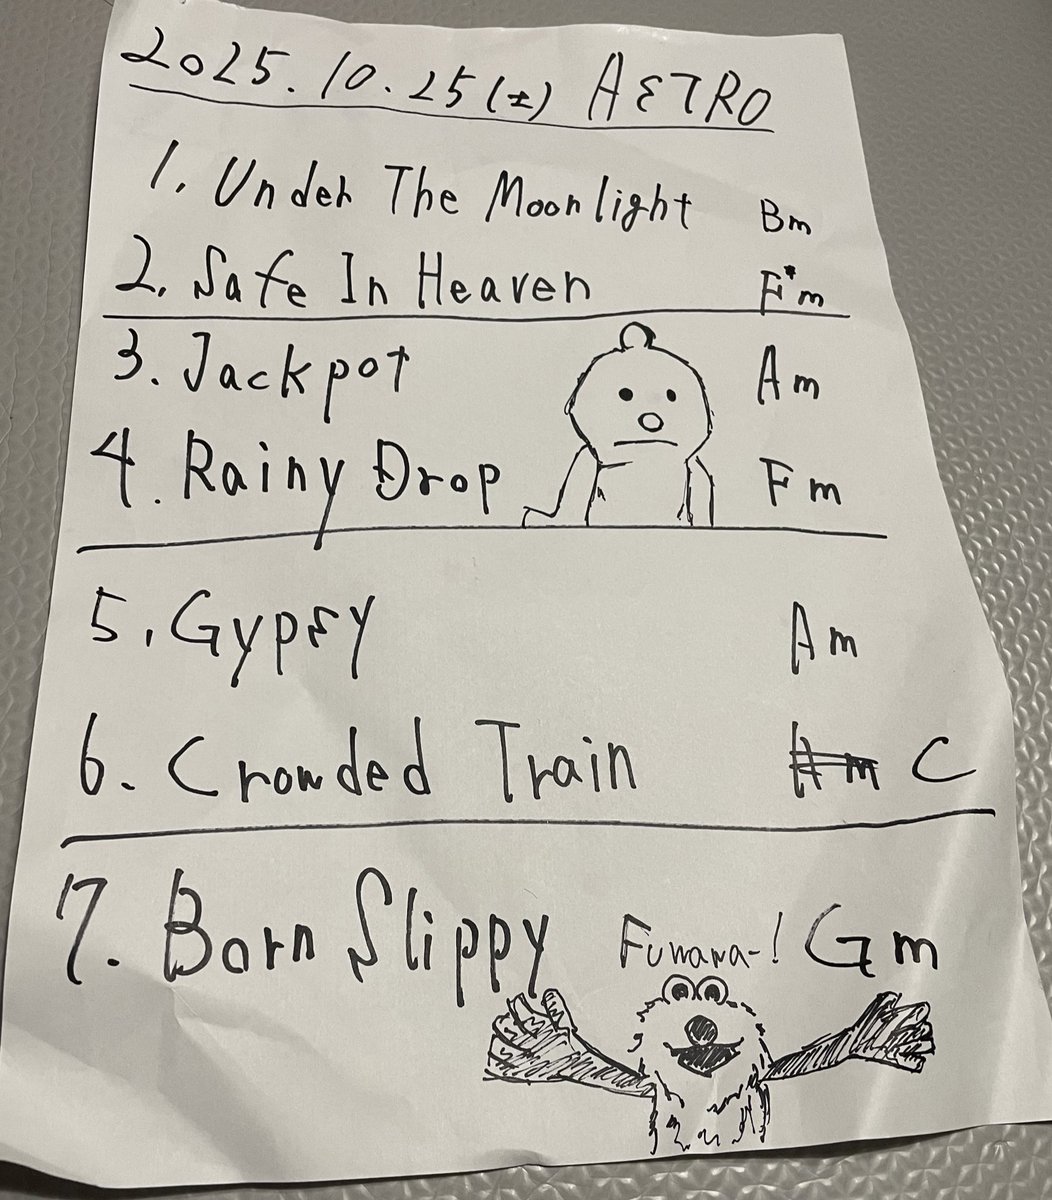 2025.10.25(土) ASTRO
1. Under The Moonlight Bm
2. Safe In Heaven F#m
3. Jackpot Am
4. Rainy Drop Fm
5. Gypsy Am
6. Crowded Train Am C
7. Born Slippy Fuwawa-! Gm